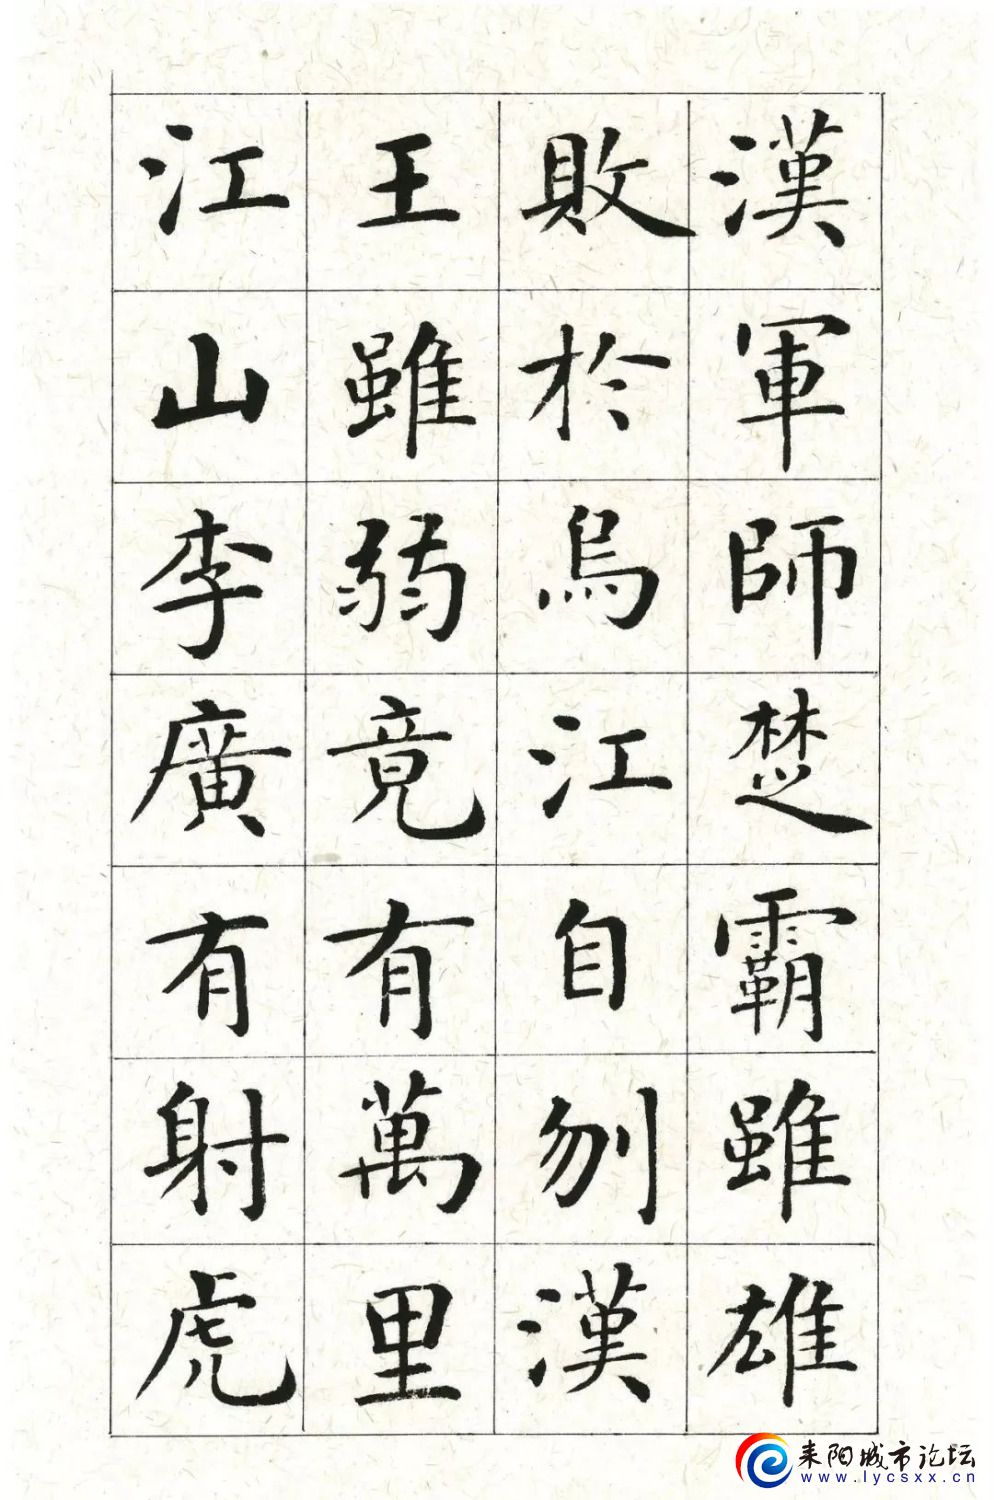 漢軍師楚霸雖雄
敗於烏江自刎漢
王雖弱竟有萬里
江山李廣有射虎
耒阳城市论坛
www.lycsxx.cn